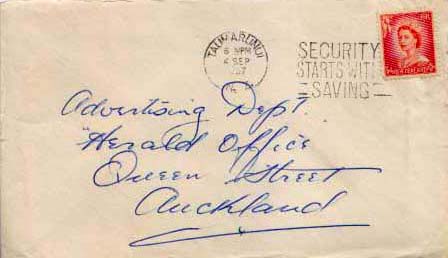 TAUMARUNUI
6 30PM
4 SEP
SECURITY
STARTS WITH
SAVING
Advertising Dept.
"Herald Office
Queen Street
Auckland